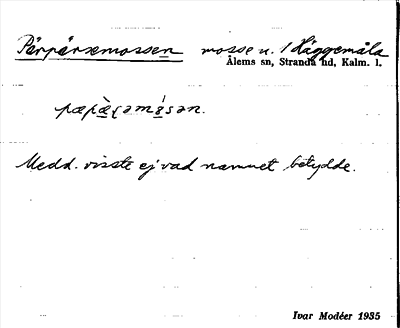 Pärpärsemossen mosse u. / Häggemåla
Ålems sn, Stranda hd, Kalm. l.
Medd. visste ej vad namnet betydde.
Ivar Modéer 1935